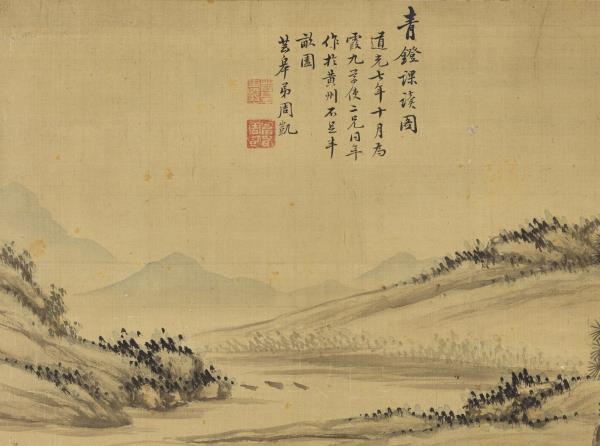 青鐙課讀圖
道光七年十月為
霞九學使二兄同年
作於黃州不足半
畝園
芸皋弟周凱